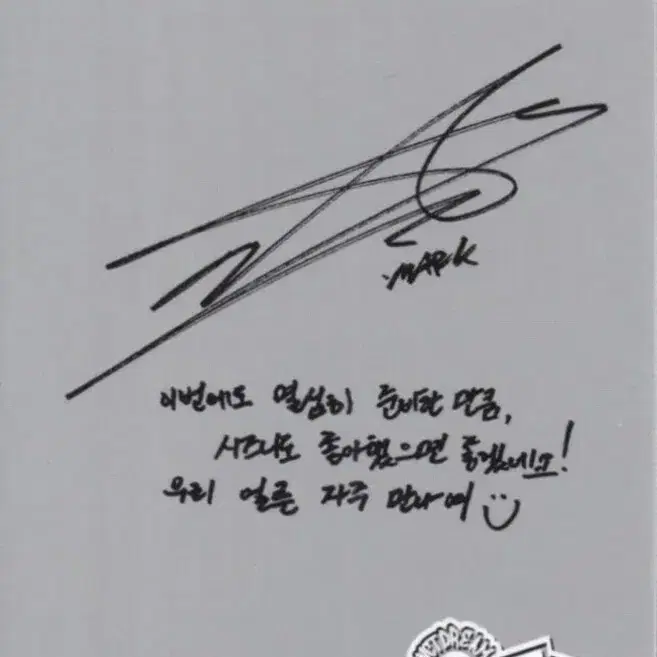 MARK
이번에도 열심히 준비한 만큼,
시즈니도 좋아했으면 좋겠네요!
우리 얼른 자주 만나여
NCT DREAM